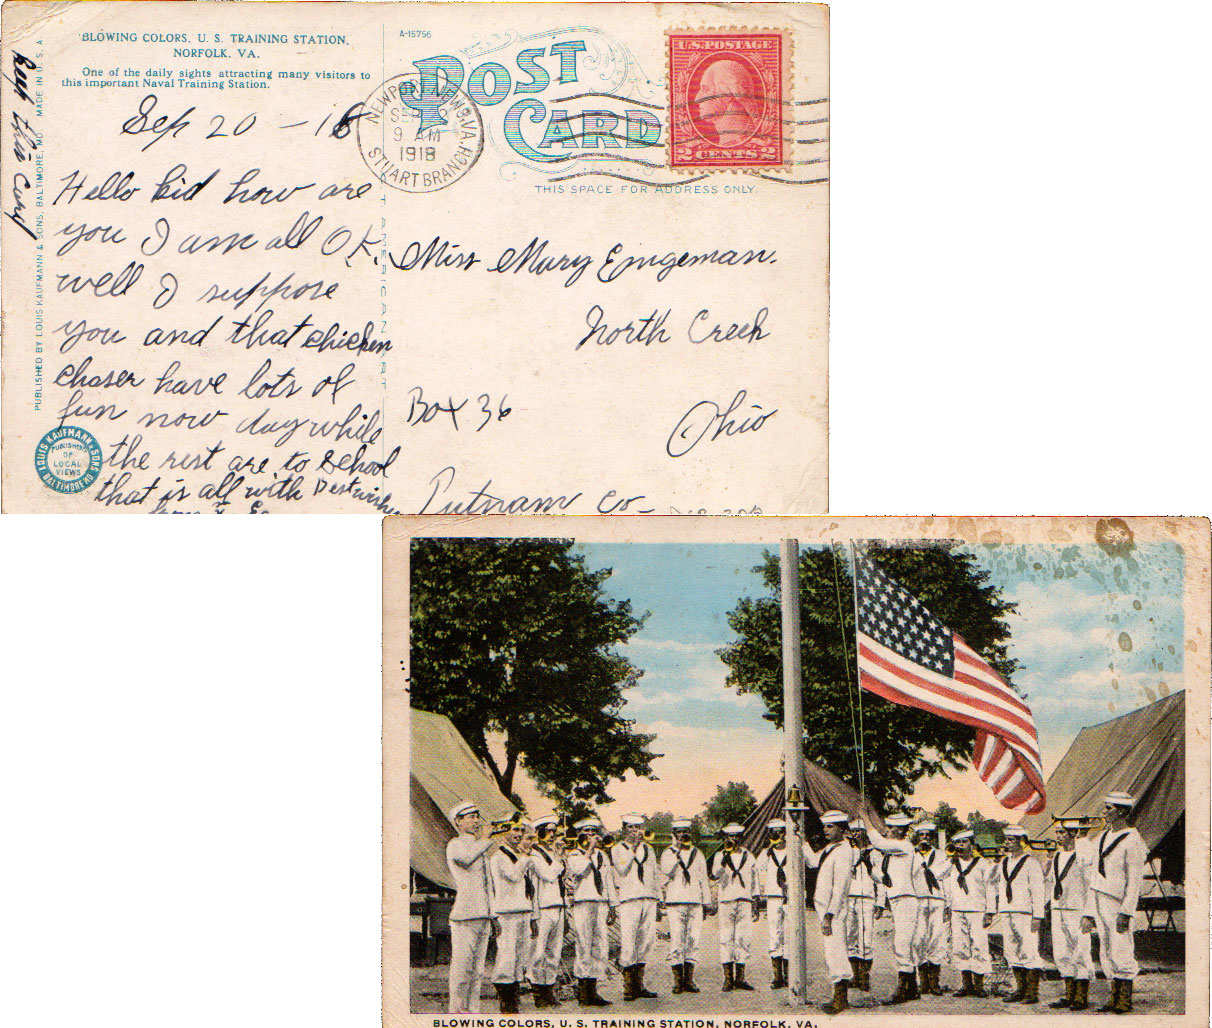 BLOWING COLORS, U. S. TRAINING STATION,
NORFOLK, VA.
One of the daily sights attracting many visitors to
this important Naval Training Station.
A-15756
POST
CARD
THIS SPACE FOR ADDRESS ONLY.
NEWPORT NEWS, VA.
SEP
9 AM
1918
STUART BRANCH
U.S. POSTAGE
2 CENTS 2
PUBLISHED BY LOUIS KAUFMANN & SONS, BALTIMORE, MD. MADE IN U. S. A.
"AMERICAN ART"
Sep 20 - 18
Hello kid how are
you I am all O.K.
well I suppose
you and that chicken
chaser have lots of
fun now day while
the rest are to school
that is all with Best wishes
Miss Mary Engeman.
North Creek
Box 36
Ohio
Putnam Co-
LOUIS KAUFMANN & SONS
BALTIMORE MD.
PUBLISHERS
OF
LOCAL
VIEWS
BLOWING COLORS, U. S. TRAINING STATION, NORFOLK, VA.